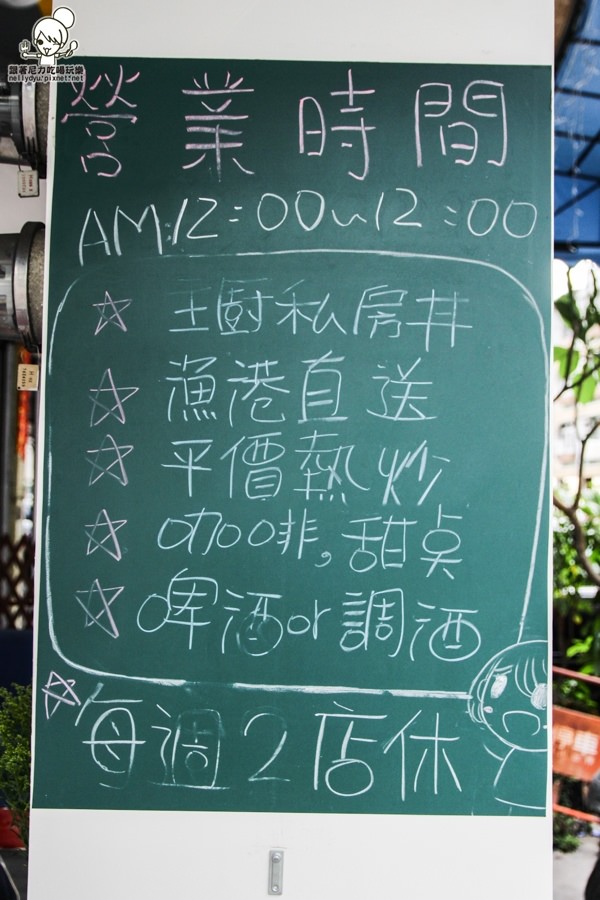 跟著尼力吃喝玩樂
nellydyu.pixnet.net
營業時間
AM:12:00~12:00
☆ 王廚私房丼
☆ 漁港直送
☆ 平價熱炒
☆ 咖啡,甜点
☆ 啤酒or調酒
☆每週2店休
停車